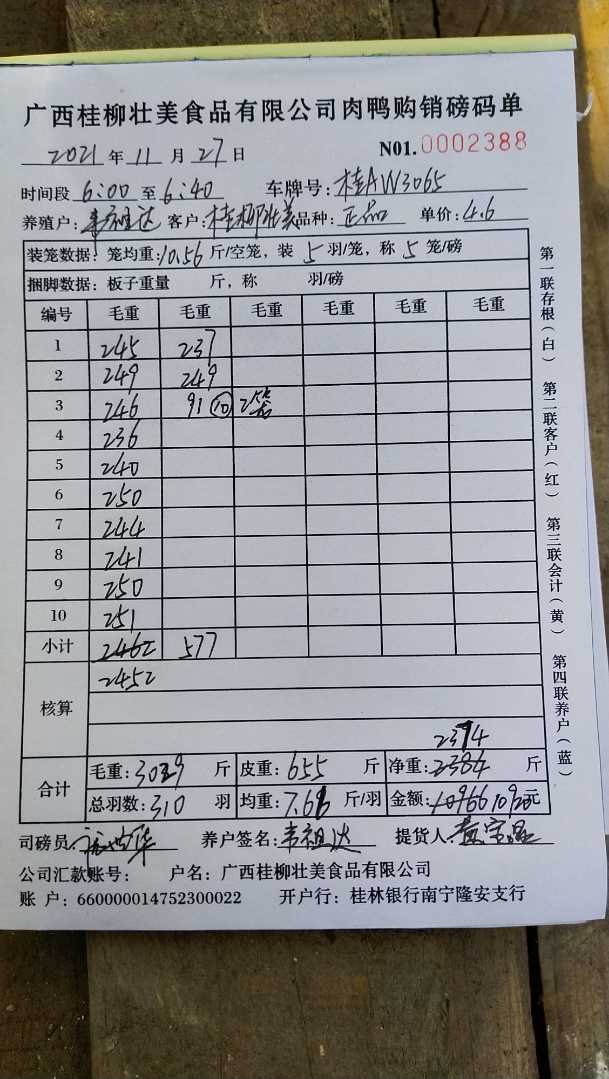 广西桂柳壮美食品有限公司肉鸭购销磅码单
2021年11月27日 N01.0002388
时间段6:00至6:40 车牌号:桂AW3065
养殖户:韦祖达 客户:桂柳壮美 品种:正品 单价:4.6
装笼数据:笼均重:10.56斤/空笼,装5羽/笼,称5笼/磅
捆脚数据:板子重量 斤,称 羽/磅
编号 毛重 毛重 毛重 毛重 毛重 毛重
1 245 237
2 249 249
3 246 91 ⑩ 2笼
4 236
5 240
6 250
7 244
8 241
9 250
10 251
小计 2462 577
核算 2452
2374
合计 毛重:3029斤 皮重:655斤 净重:2384斤
总羽数:310羽 均重:7.66斤/羽 金额:10966 10920元
司磅员: 养户签名:韦祖达 提货人:
公司汇款账号: 户名:广西桂柳壮美食品有限公司
账 户:660000014752300022 开户行:桂林银行南宁隆安支行
第一联存根(白) 第二联客户(红) 第三联会计(黄) 第四联养户(蓝)